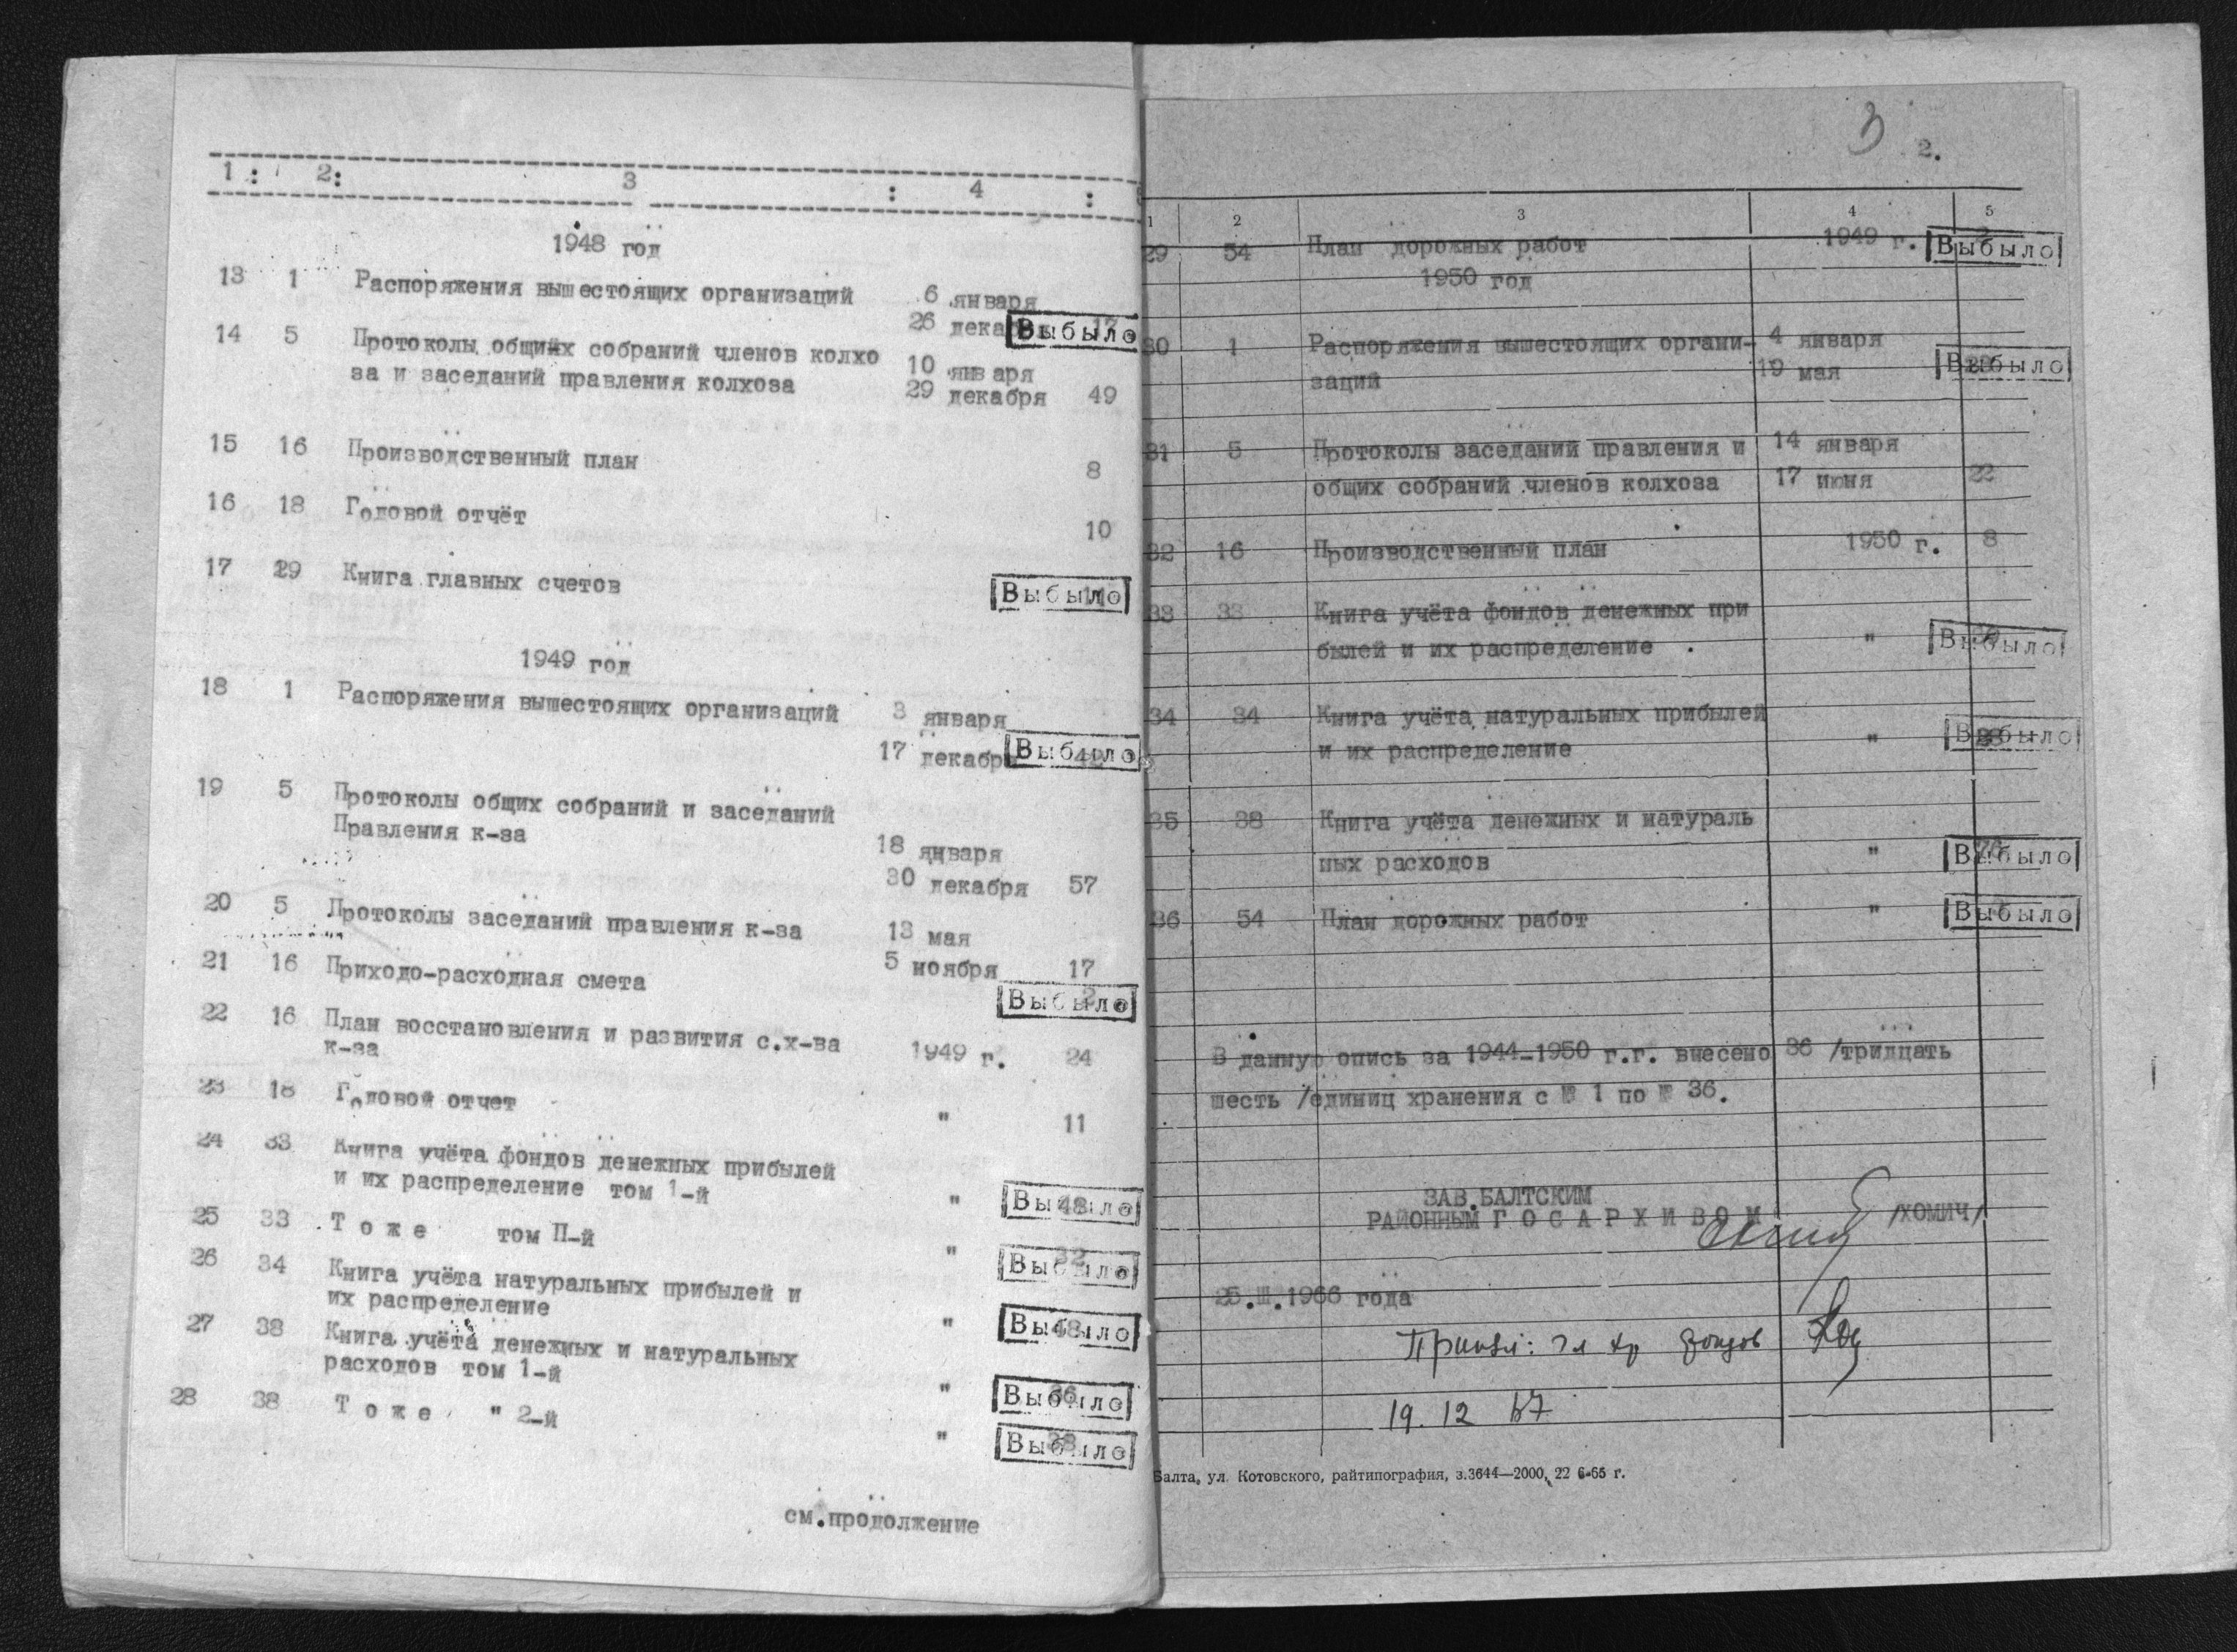 1 : 2: 3 : 4 :
1948 год
13 1 Распоряжения вышестоящих организаций 6 января
26 дека Выбыло
14 5 Протоколы общиих собраний членов колхо 10 января
за и заседаний правления колхоза 29 декабря 49
15 16 Производственный план 8
16 18 Годовой отчёт 10
17 29 Книга главных счетов Выбыло
1949 год
18 1 Распоряжения вышестоящих организаций 3 января
17 декабр Выбыло
19 5 Протоколы общих собраний и заседаний
Правления к-за 18 января
30 декабря 57
20 5 Протоколы заседаний правления к-за 13 мая
5 ноября 17
21 16 Приходо-расходная смета Выбыло
22 16 План восстановления и развития с.х-ва
к-за 1949 г. 24
23 18 Годовой отчет " 11
24 33 Книга учёта фондов денежных прибылей
и их распределение том 1-й " Выбыло 48
25 33 Т о ж е том П-й " Выбыло 32
26 34 Книга учёта натуральных прибылей и
их распределение " Выбыло 48
27 38 Книга учёта денежных и натуральных
расходов том 1-й " Выбыло 36
28 38 Т о ж е " 2-й " Выбыло 38
см.продолжение
3 2.
1 2 3 4 5
29 54 План дорожных работ 1949 г. Выбыло
1950 год
30 1 Распоряжения вышестоящих органи- 4 января
заций 19 мая Выбыло
31 5 Протоколы заседаний правления и 14 января
общих собраний членов колхоза 17 июня 22
32 16 Производственный план 1950 г. 8
33 33 Книга учёта фондов денежных при
былей и их распределение . " Выбыло
34 34 Книга учёта натуральных прибылей
и их распределение " Выбыло
35 38 Книга учёта денежных и натураль
ных расходов " Выбыло
36 54 План дорожных работ " Выбыло
В данную опись за 1944-1950 г.г. внесено 36 /тридцать
шесть /единиц хранения с № 1 по № 36.
ЗАВ.БАЛТСКИМ
РАЙОННЫМ Г О С А Р Х И В О М /ХОМИЧ/
25.Ш.1966 года
Принял: гл хр фондов
19. 12 67
Балта, ул. Котовского, райтипография, з.3644—2000, 22 6-65 г.